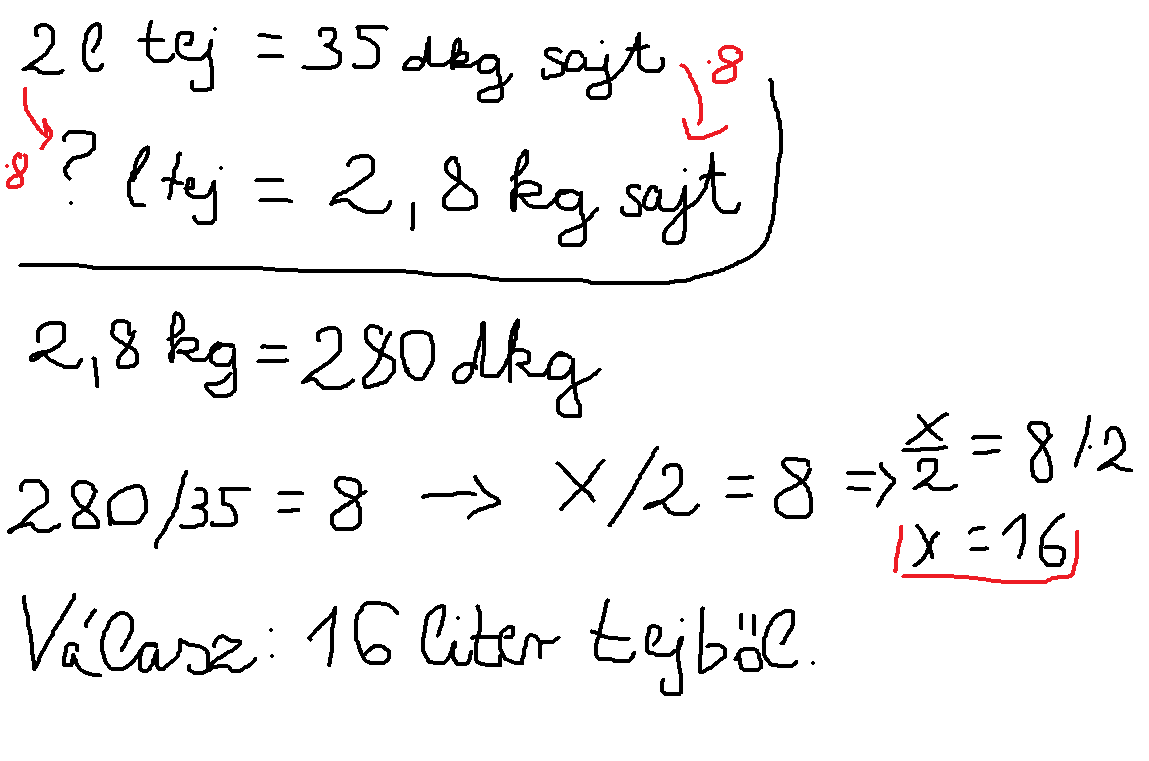 2l tej = 35 dkg sajt ·8
·8 ? l tej = 2,8 kg sajt
2,8 kg = 280 dkg
280/35 = 8 → x/2 = 8 ⇒ x/2 = 8 /·2
x = 16
Válasz: 16 liter tejből.